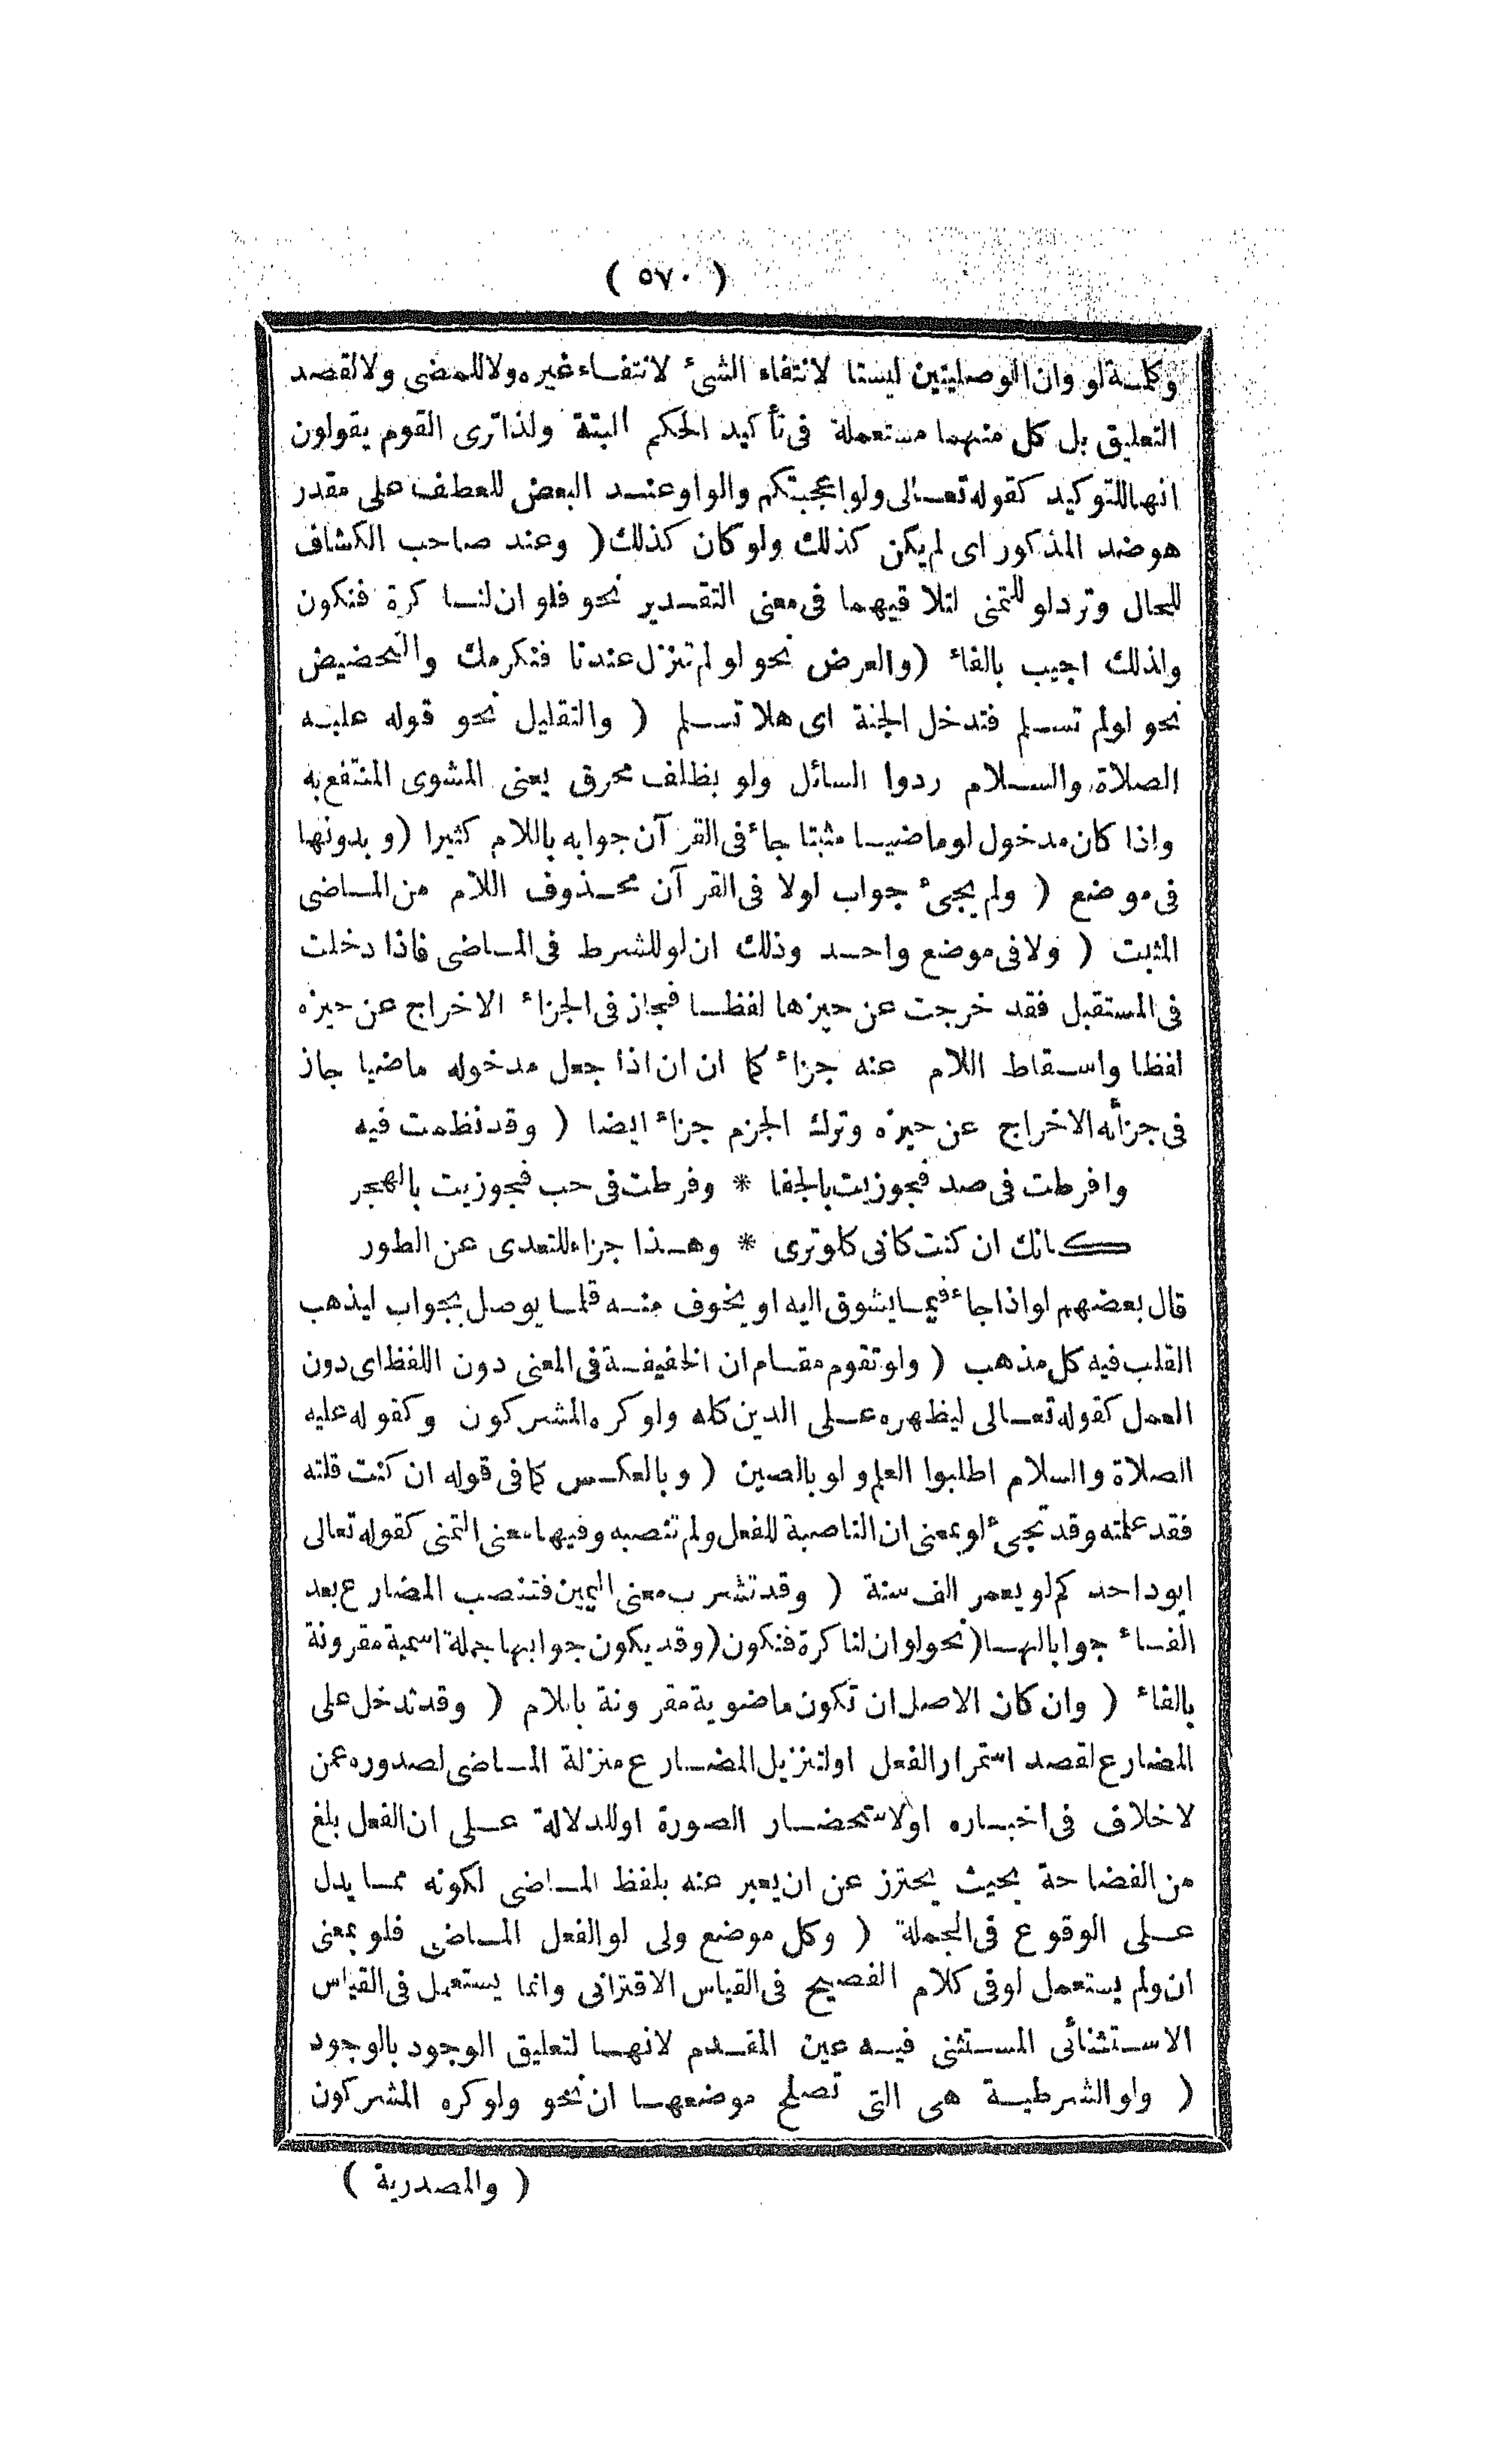 ( ٥٧٠ )
وكلمة لو وان الوصليتين ليستا لانتفاء الشئ لانتفاء غيره ولا للمضى ولا لقصد
التعليق بل كل منهما مستعملة فى تأكيد الحكم البتة ولذا ترى القوم يقولون
انها للتوكيد كقوله تعالى ولو اعجبتكم والواو عند البعض للعطف على مقدر
هو ضد المذكور اى لم يكن كذلك ولو كان كذلك ( وعند صاحب الكشاف
للحال وترد لو للتمنى لتلاقيهما فى معنى التقدير نحو فلو ان لنا كرة فنكون
ولذلك اجيب بالفاء ( والعرض نحو لو لم تنزل عندنا فنكرمك والتحضيض
نحو لو لم تسلم فتدخل الجنة اى هلا تسلم ( والتقليل نحو قوله عليه
الصلاة والسلام ردوا السائل ولو بظلف محرق يعنى المشوى المنتفع به
واذا كان مدخول لو ماضيا مثبتا جاء فى القرآن جوابه باللام كثيرا ( وبدونها
فى موضع ( ولم يجئ جواب لولا فى القرآن محذوف اللام من الماضى
المثبت ( ولا فى موضع واحد وذلك ان لو للشرط فى الماضى فاذا دخلت
فى المستقبل فقد خرجت عن حيزها لفظا فجاز فى الجزاء الاخراج عن حيزه
لفظا واسقاط اللام عنه جزاء كما ان ان اذا جعل مدخوله ماضيا جاز
فى جزائه الاخراج عن حيزه وترك الجزم جزاء ايضا ( وقد نظمت فيه
وافرطت فى صد فجوزيت بالجفا * وفرطت فى حب فجوزيت بالهجر
كانك ان كنت كانى كلوترى * وهذا جزاء للتعدى عن الطور
قال بعضهم لو اذا جاء فيما يشوق اليه او يخوف منه قلما يوصل بجواب ليذهب
القلب فيه كل مذهب ( ولو تقوم مقام ان الخفيفة فى المعنى دون اللفظ اى دون
العمل كقوله تعالى ليظهره على الدين كله ولو كره المشركون وكقوله عليه
الصلاة والسلام اطلبوا العلم ولو بالصين ( وبالعكس كما فى قوله ان كنت قلته
فقد علمته وقد تجئ لو بمعنى ان الناصبة للفعل ولم تنصبه وفيها معنى التمنى كقوله تعالى
ايود احدكم لو يعمر الف سنة ( وقد تشرب معنى اليمين فتنصب المضارع بعد
الفاء جوابا لها ( نحو لو ان لنا كرة فنكون ( وقد يكون جوابها جملة اسمية مقرونة
بالفاء ( وان كان الاصل ان تكون ماضوية مقرونة باللام ( وقد تدخل على
المضارع لقصد استمرار الفعل او لتنزيل المضارع منزلة الماضى لصدوره عمن
لا خلاف فى اخباره او لاستحضار الصورة او للدلالة على ان الفعل بلغ
من الفضاحة بحيث يحترز عن ان يعبر عنه بلفظ الماضى لكونه مما يدل
على الوقوع فى الجملة ( وكل موضع ولى لو الفعل الماضى فلو بمعنى
ان ولم يستعمل لو فى كلام الفصيح فى القياس الاقترانى وانما يستعمل فى القياس
الاستثنائى المستثنى فيه عين المقدم لانها لتعليق الوجود بالوجود
( ولو الشرطية هى التى تصلح موضعها ان نحو ولو كره المشركون
( والمصدرية )